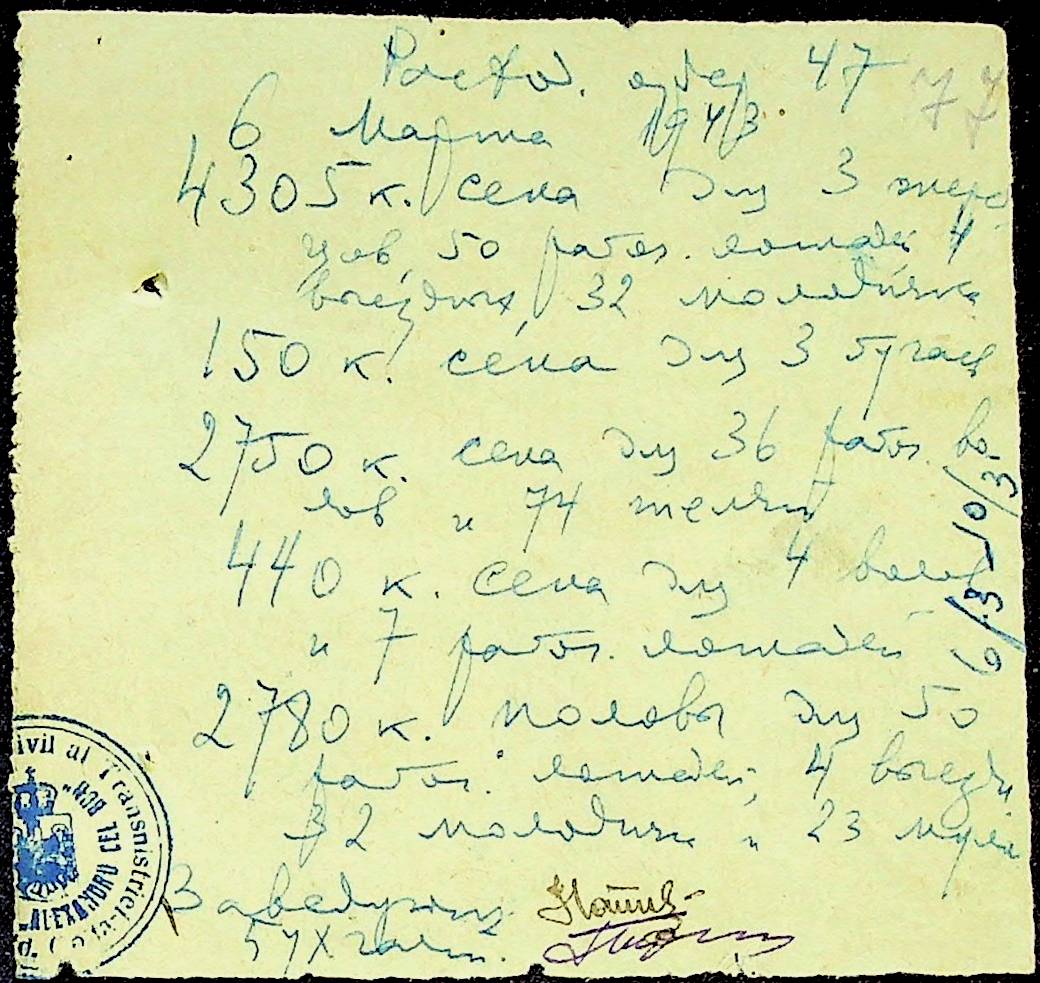 Расход. ордер. 47 77
6 Марта 1943.
4305 к. сена для 3 жереб
цов, 50 рабоч. лошадей 4
выездных, 32 молодняка
150 к. сена для 3 бугаев
2750 к. сена для 36 рабоч. во-
лов и 74 телят
440 к. сена для 4 волов
и 7 рабоч. лошадей
2780 к. половы для 50
рабоч. лошадей, 4 выездн
32 молодняка и 23
6/3-10/3
Заведующий
ivil al Transnistriei
"ALEXANDRU CEL BUN"